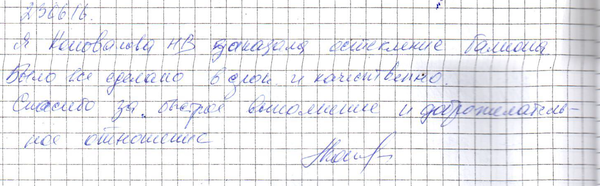 23 06 16.
Я Коновалова НВ заказала остекление балкона
Было все сделано в срок и качественно.
Спасибо за быстрое выполнение и доброжелатель-
ное отношение